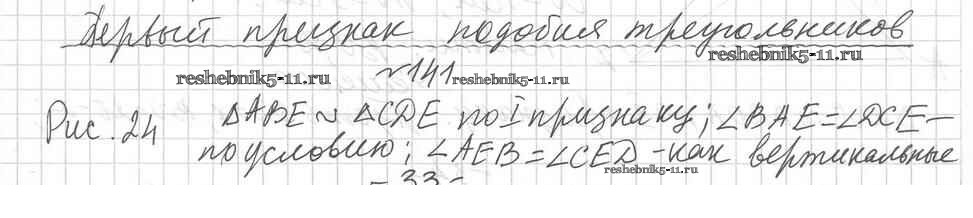 Первый признак подобия треугольников
reshebnik5-11.ru
reshebnik5-11.ru
№141
reshebnik5-11.ru
Рис. 24
ΔABE ~ ΔCDE по I признаку; ∠BAE = ∠DCE –
по условию; ∠AEB = ∠CED - как вертикальные
reshebnik5-11.ru
- 33 -